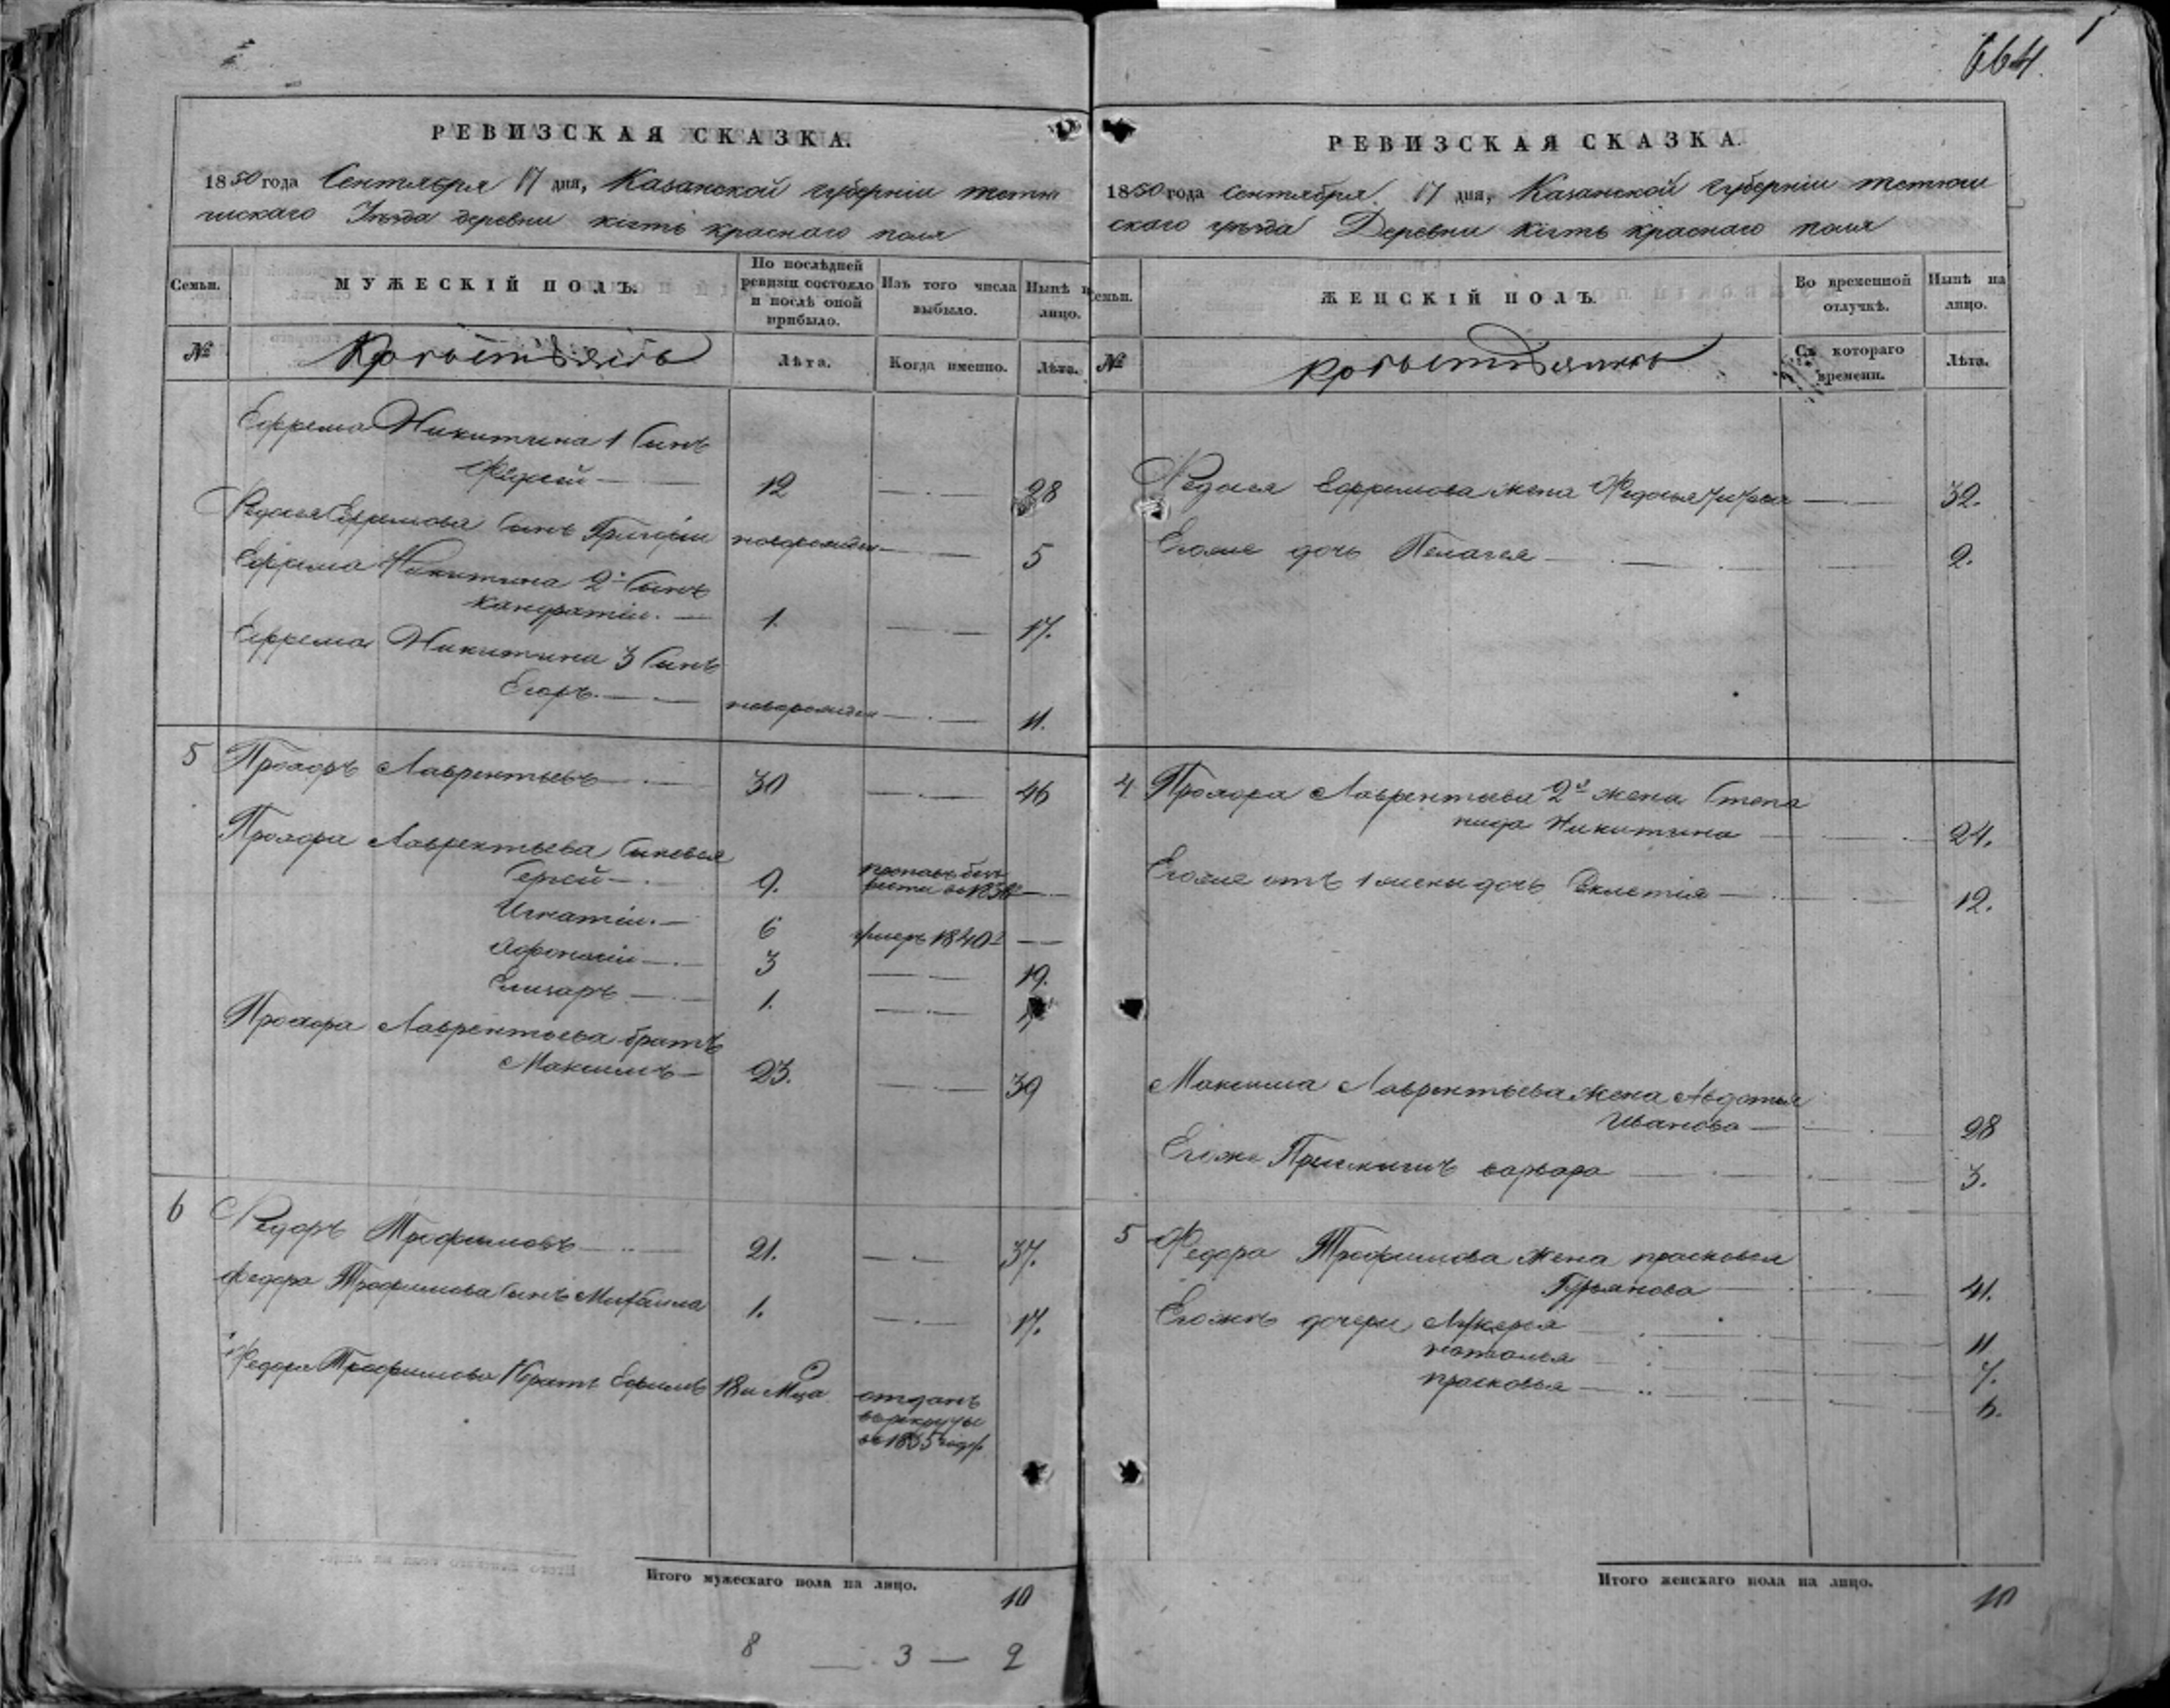 664.
РЕВИЗСКАЯ СКАЗКА.
1850 года Сентября 17 дня, Казанской губерніи тетю
шскаго Уѣзда деревни красного поля
Семьи.
МУЖЕСКІЙ ПОЛЪ.
По послѣдней ревизіи состояло и послѣ оной прибыло.
Изъ того числа выбыло.
Нынѣ н лицо.
№
Лѣта.
Когда именно.
Лѣта.
Ефрема Никитина 1 Сынъ
12 28
Сынъ Григорій новорожден 5
Ефрема Никитина 2й Сынъ
Кандратій. 1. 17.
Ефрема Никитина 3 Сынъ
Егоръ. новорожден 11.
5 Прохоръ Лаврентьевъ 30 46
Прохора Лаврентьева Сыновья
Сергей 9.
Игнатій. 6 умеръ 1840г
Афонасій 3 19.
Елизаръ 1.
Прохора Лаврентьева братъ
Максимъ 23. 39
6 Федоръ Трофимовъ 21. 37.
Федора Трофимова Сынъ Михаила 1. 17.
Федора Трофимова братъ Ефимъ 18 и Мца отданъ
врекруты
в 1835 году
Итого мужескаго пола на лицо.
10
8 — 3 — 2
РЕВИЗСКАЯ СКАЗКА.
1850 года Сентября 17 дня, Казанской губерніи тетюш
скаго уѣзда Деревни красного поля
Семьи.
ЖЕНСКІЙ ПОЛЪ.
Во временной отлучкѣ.
Нынѣ на лицо.
№
Съ котораго времени.
Лѣта.
Ефремова жена Федосья 32.
Егоже дочь Пелагея 2.
4 Прохора Лаврентьева 2я жена Степа
нида Никитина 24.
Егоже отъ 1 жены дочь 12.
Максима Лаврентьева жена Авдотья
Иванова 28
Егоже варвара 3.
5 Федора Трофимова Жена прасковья
Гурьянова 41.
Егожъ дочери Лукерья 11
наталья 7.
прасковья 6.
Итого женскаго пола на лицо.
10